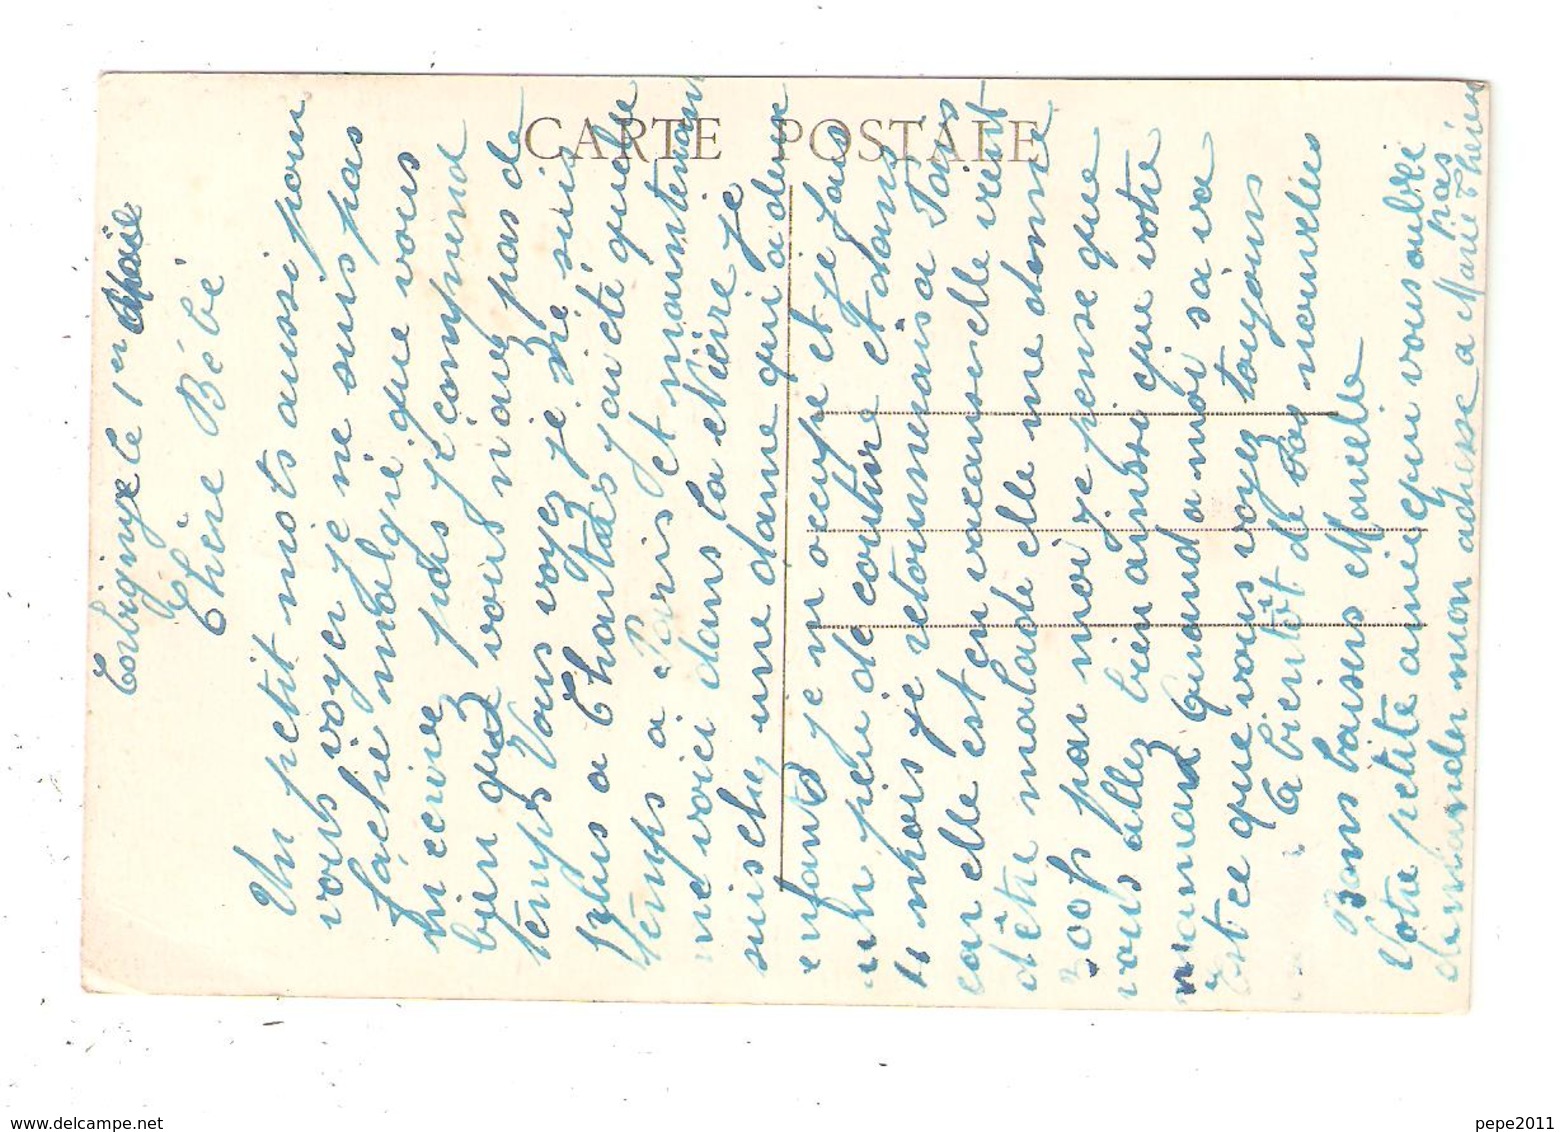 CARTE POSTALE
Corbigny le 1er Août
Chère Bébé
Un petit mots aussi pour
vous voyer je ne suis pas
faché malgré que vous
m'écrive pas je comprend
bien que vous n'avez pas de
temps Vous voyez je me suis
plus a Chartres j'ai été quelque
temps a Paris et maintenant
me voici dans la Nièvre je
suis chez une dame qui a deux
enfants je m'occupe et je fais
un peu de couture et dans
4 mois je retournerais a Paris
car elle est en vacansuelle vient
d'être malade elle me donne
300f par moi je pense que
vous allez bien ainsi que votre
maman Quand a moi sa va
Est ce que vous voyez toujours
A bientôt de vos nouvelles
Bons baisers Mouelle
Votre petite amie qui vous oublie pas
demander mon adresse a Marie Thérèse
www.delcampe.net
pepe2011